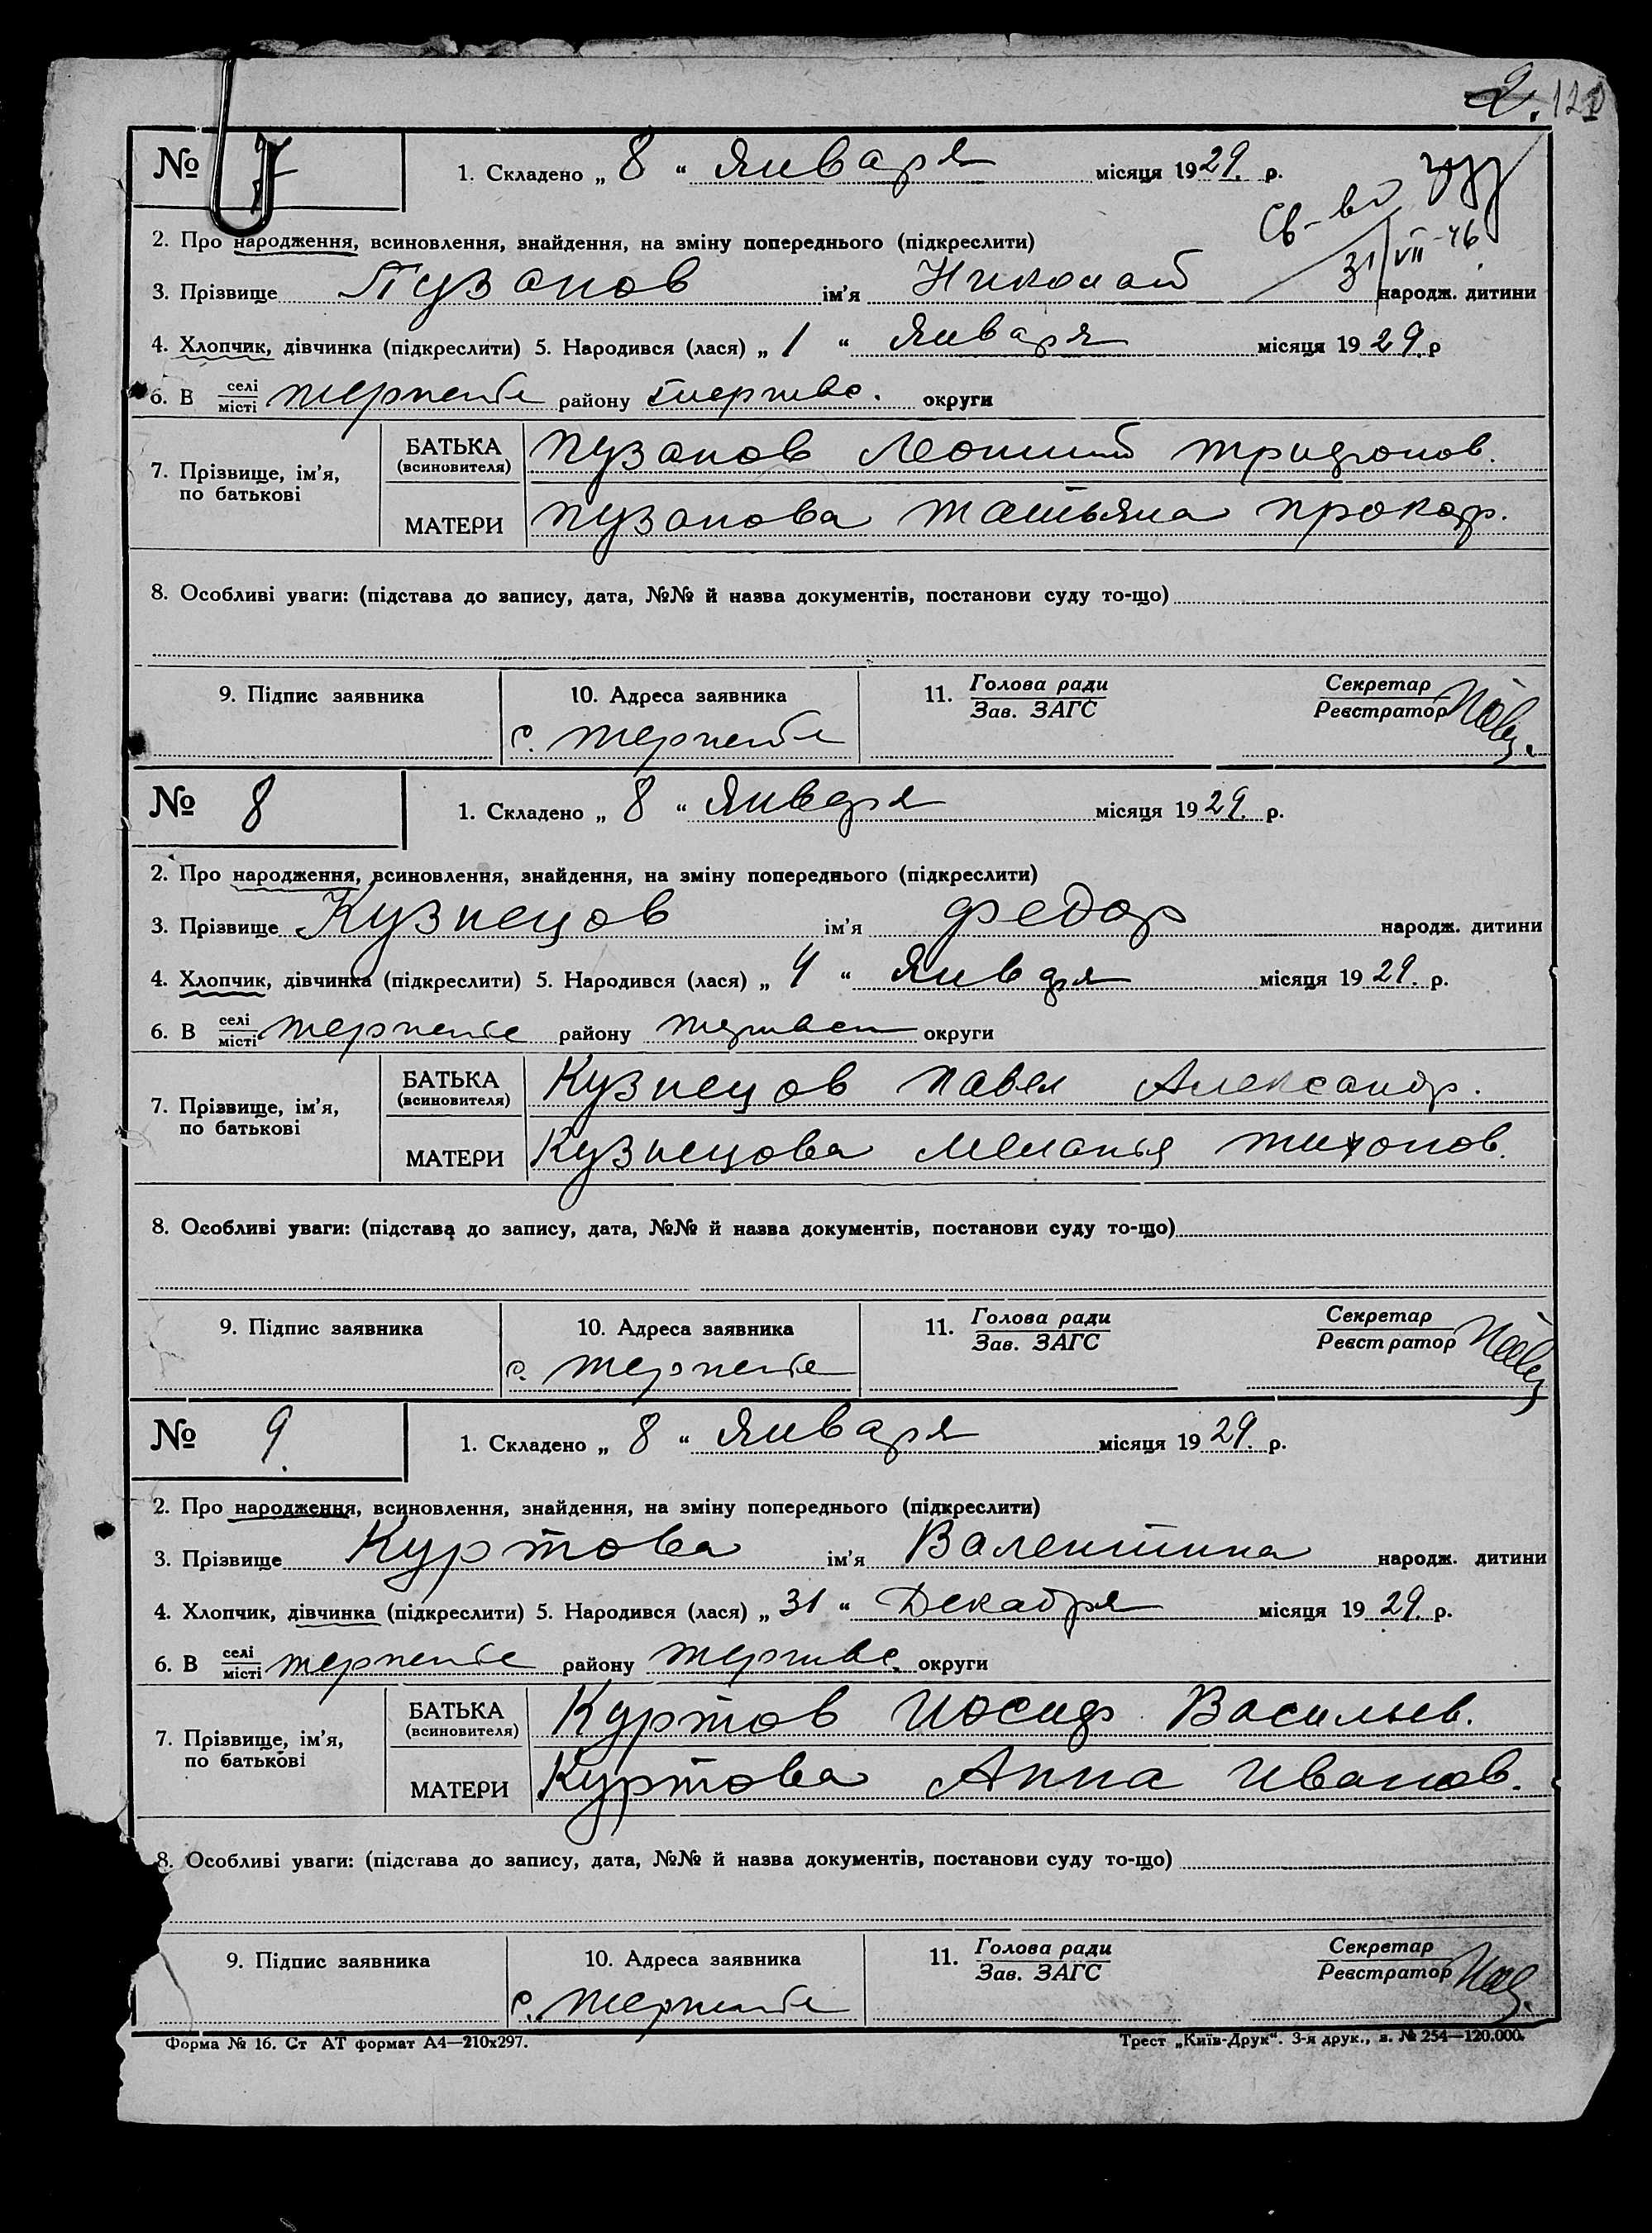 2. 120
№ 7 1. Складено „ 8 “ Января місяця 1929. р.
Св-во
31/VII-46.
2. Про народження, всиновлення, знайдення, на зміну попереднього (підкреслити)
3. Прізвище Пузанов ім'я Николай народж. дитини
4. Хлопчик, дівчинка (підкреслити) 5. Народився (лася) „ 1 “ Января місяця 1929 р
6. В селі/місті терпенье району округи
7. Прізвище, ім'я, по батькові
БАТЬКА (всиновителя) Пузанов Леонтий Трифонов.
МАТЕРИ Пузанова Татьяна Прокоф.
8. Особливі уваги: (підстава до запису, дата, №№ й назва документів, постанови суду то-що)
9. Підпис заявника 10. Адреса заявника 11. Голова ради/Зав. ЗАГС Секретар/Реєстратор
с. терпенье
№ 8 1. Складено „ 8 “ Января місяця 1929. р.
2. Про народження, всиновлення, знайдення, на зміну попереднього (підкреслити)
3. Прізвище Кузнецов ім'я Федор народж. дитини
4. Хлопчик, дівчинка (підкреслити) 5. Народився (лася) „ 4 “ Января місяця 1929. р.
6. В селі/місті терпенье району округи
7. Прізвище, ім'я, по батькові
БАТЬКА (всиновителя) Кузнецов Павел Александр.
МАТЕРИ Кузнецова Меланья Тихонов.
8. Особливі уваги: (підстава до запису, дата, №№ й назва документів, постанови суду то-що)
9. Підпис заявника 10. Адреса заявника 11. Голова ради/Зав. ЗАГС Секретар/Реєстратор
с. терпенье
№ 9. 1. Складено „ 8 “ Января місяця 1929. р.
2. Про народження, всиновлення, знайдення, на зміну попереднього (підкреслити)
3. Прізвище Куртова ім'я Валентина народж. дитини
4. Хлопчик, дівчинка (підкреслити) 5. Народився (лася) „ 31 “ Декабря місяця 1929. р.
6. В селі/місті терпенье району округи
7. Прізвище, ім'я, по батькові
БАТЬКА (всиновителя) Куртов Иосиф Васильев.
МАТЕРИ Куртова Анна Иванов.
8. Особливі уваги: (підстава до запису, дата, №№ й назва документів, постанови суду то-що)
9. Підпис заявника 10. Адреса заявника 11. Голова ради/Зав. ЗАГС Секретар/Реєстратор
с. терпенье
Форма № 16. Ст АТ формат А4—210х297. Трест „Київ-Друк“. 3-я друк., з. № 254—120.000.